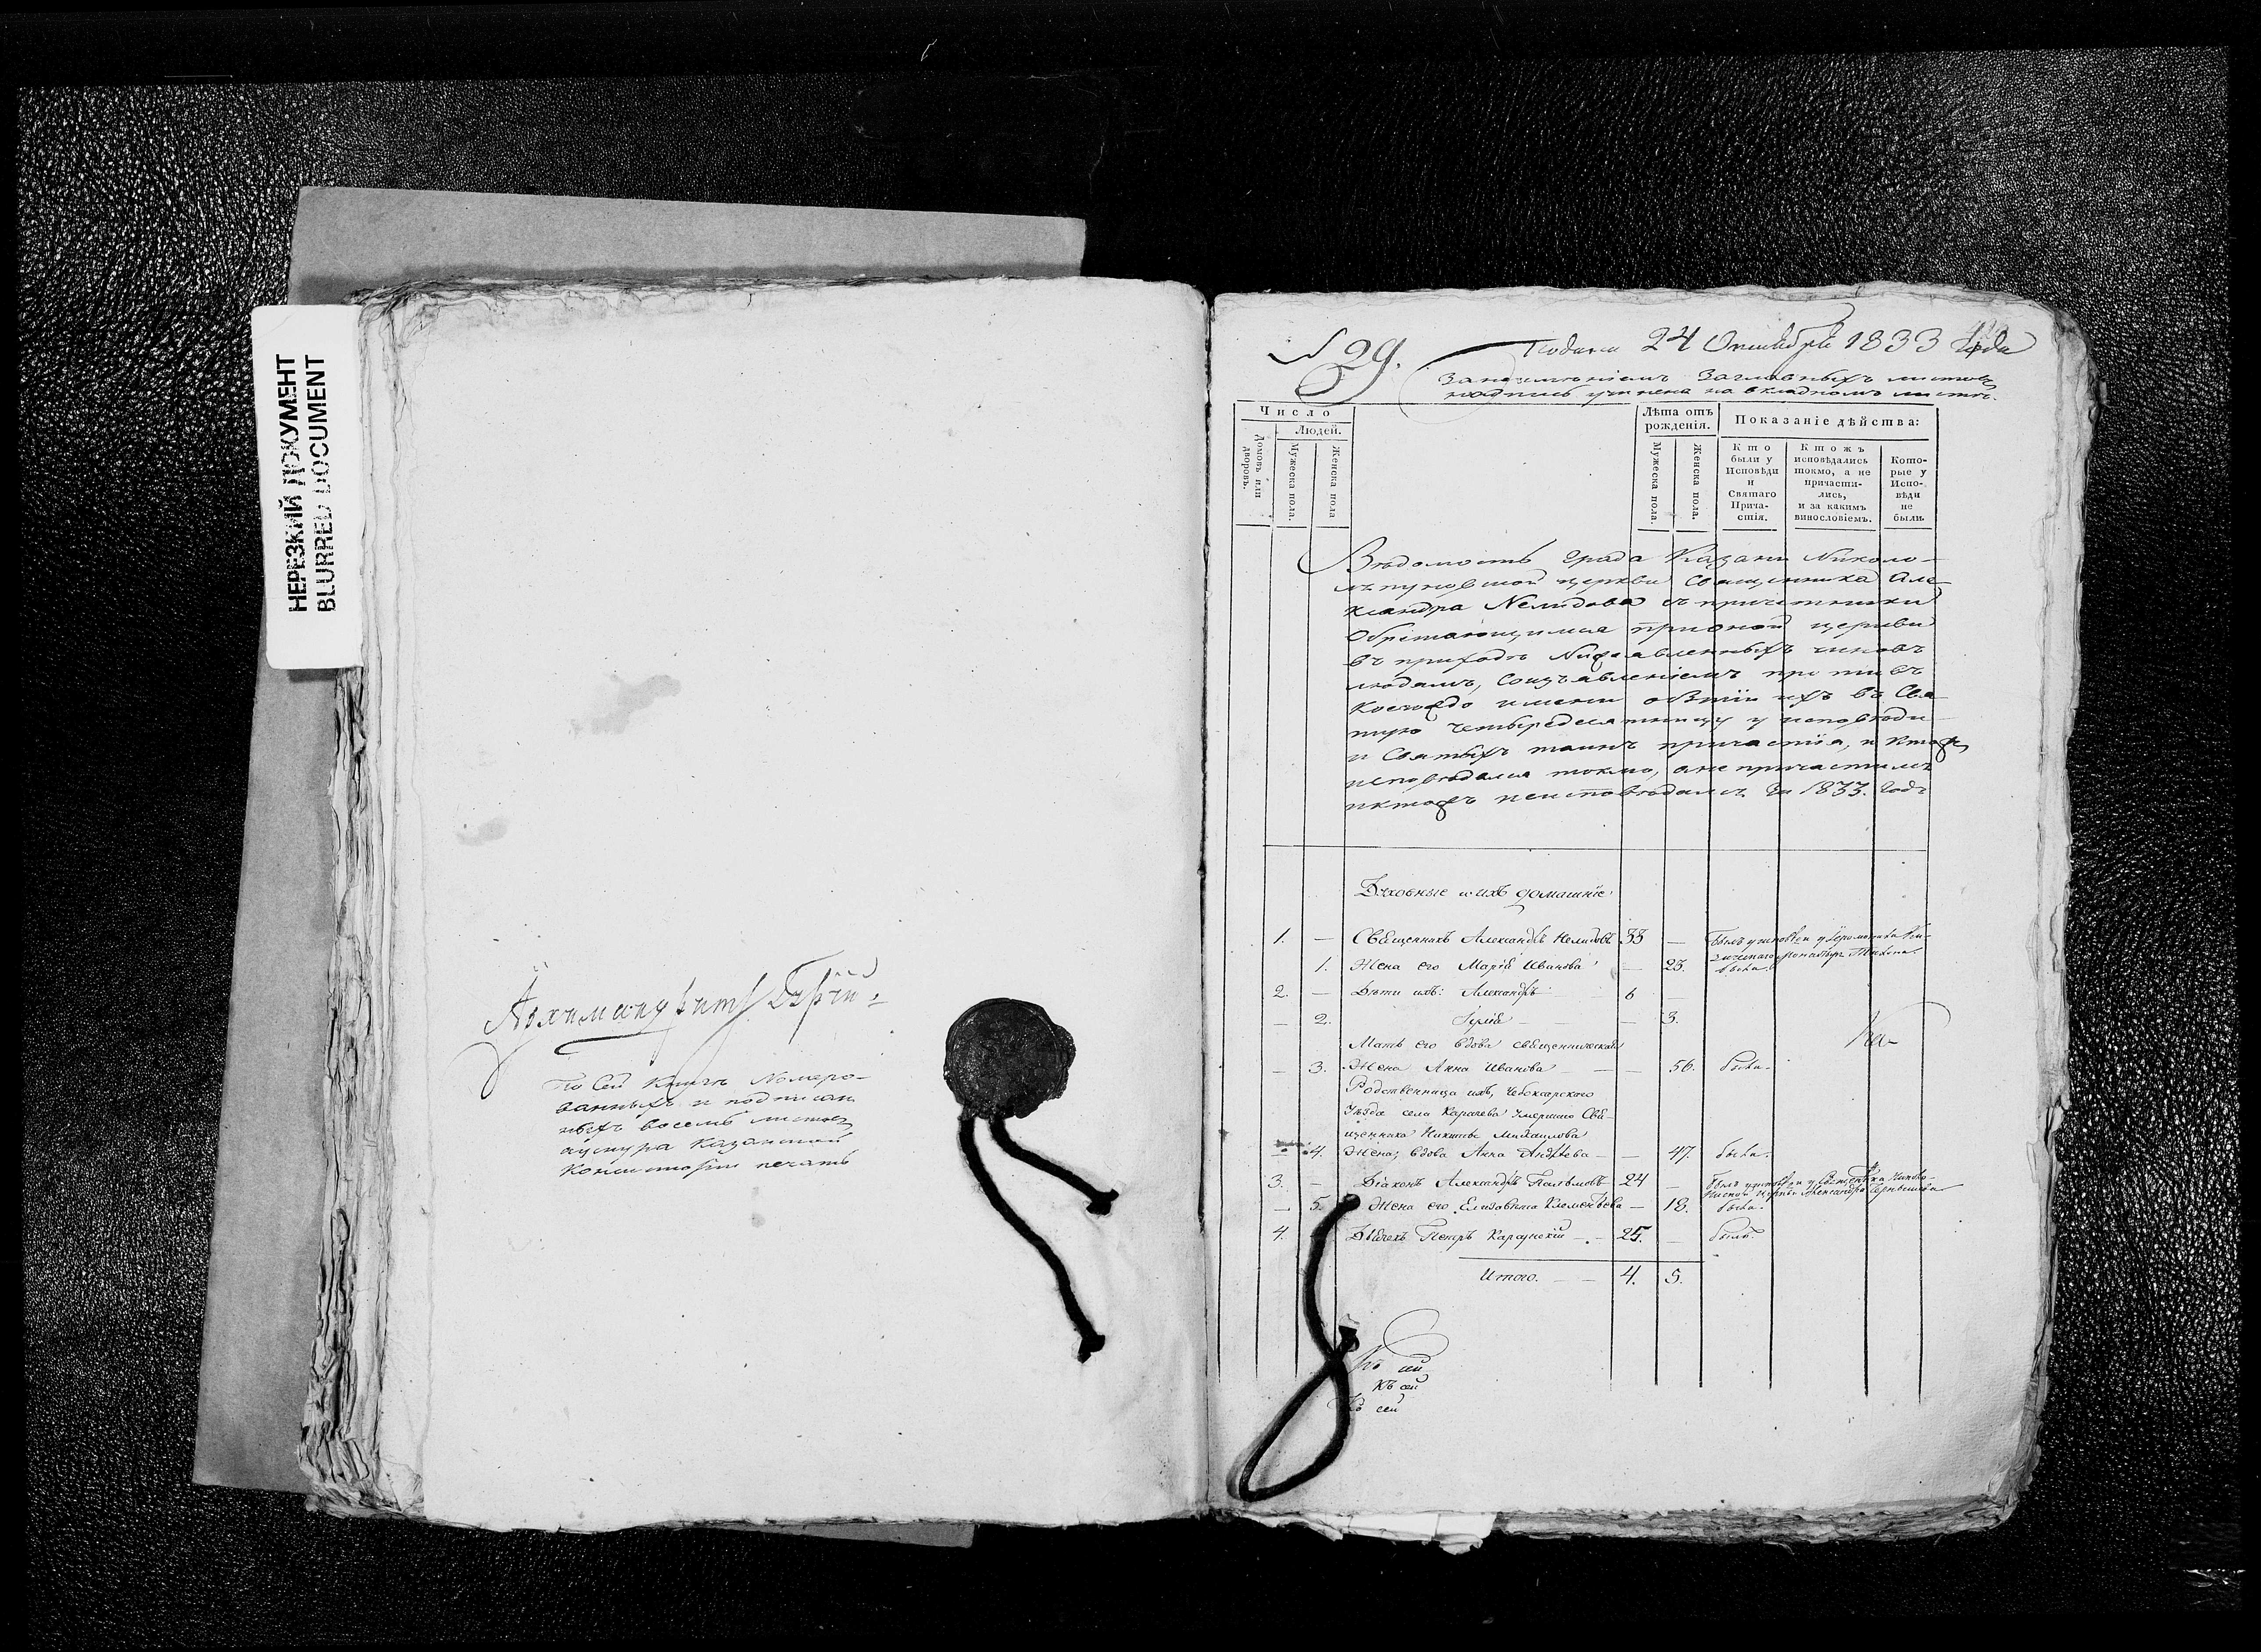 НЕРЕЗКИЙ ДОКУМЕНТ
BLURRED DOCUMENT
Архимандритъ
По сей книгѣ номеро-
ванныхъ и подписан
ныхъ восемь листовъ
аунура Казанской
Консисторіи печать
N 29.
Подана 24 Октября 1833 года
За неимѣніемъ заглавныхъ листовъ
надпись учинена на вкладномъ листѣ.
Число
Людей.
Домовъ или дворовъ.
Мужеска пола.
Женска пола
Лѣта отъ рожденія.
Мужеска пола.
Женска пола.
Показаніе дѣйства:
Кто были у Исповѣди и Святаго Причастія.
Ктожъ исповѣдались токмо, а не причастились, и за какимъ винословіемъ.
Которые у Исповѣди не были.
Вѣдомость града Казани Николо-
ляпуновской церкви Священника Але-
ксандра Нелидова съ причетники
обрѣтающимися при оной церкви
въ приходѣ нижеявленныхъ чиновъ
людямъ, со изъявленіемъ противъ
коегождо имени о бытіи ихъ въ Свя-
тую четыредесятницу у исповѣди
и Святыхъ таинъ причастія, и ктожъ
исповѣдался токмо, а не причастился
и ктожъ неисповѣдался. За 1833. годъ
Духовные и ихъ домашніе
1. — Священникъ Александръ Нелидовъ 33 — Былъ у исповѣди у Іеромонаха Ки-
зическаго монастыря
1. Жена его Марія Иванова — 23. была.
2. — Дѣти ихъ: Александръ 6 —
— 2. Юлія — 3.
Мать его вдова священническая
— 3. Жена Анна Иванова — 56. была.
Родственница ихъ, Чебоксарскаго
Уѣзда села Карачева умершаго Свя-
щенника Никиты Михайлова
— 4. Жена, вдова Анна Андреева — 47. была.
3. — Діаконъ Александръ 24 — Былъ у исповѣди у Священника
церкви Александра
— 5. Жена его Елизавета Клементьева — 18. была.
4. Дьячекъ Петръ 25. — былъ.
Итого. 4. 5.
Къ сей
Къ сей
Къ сей